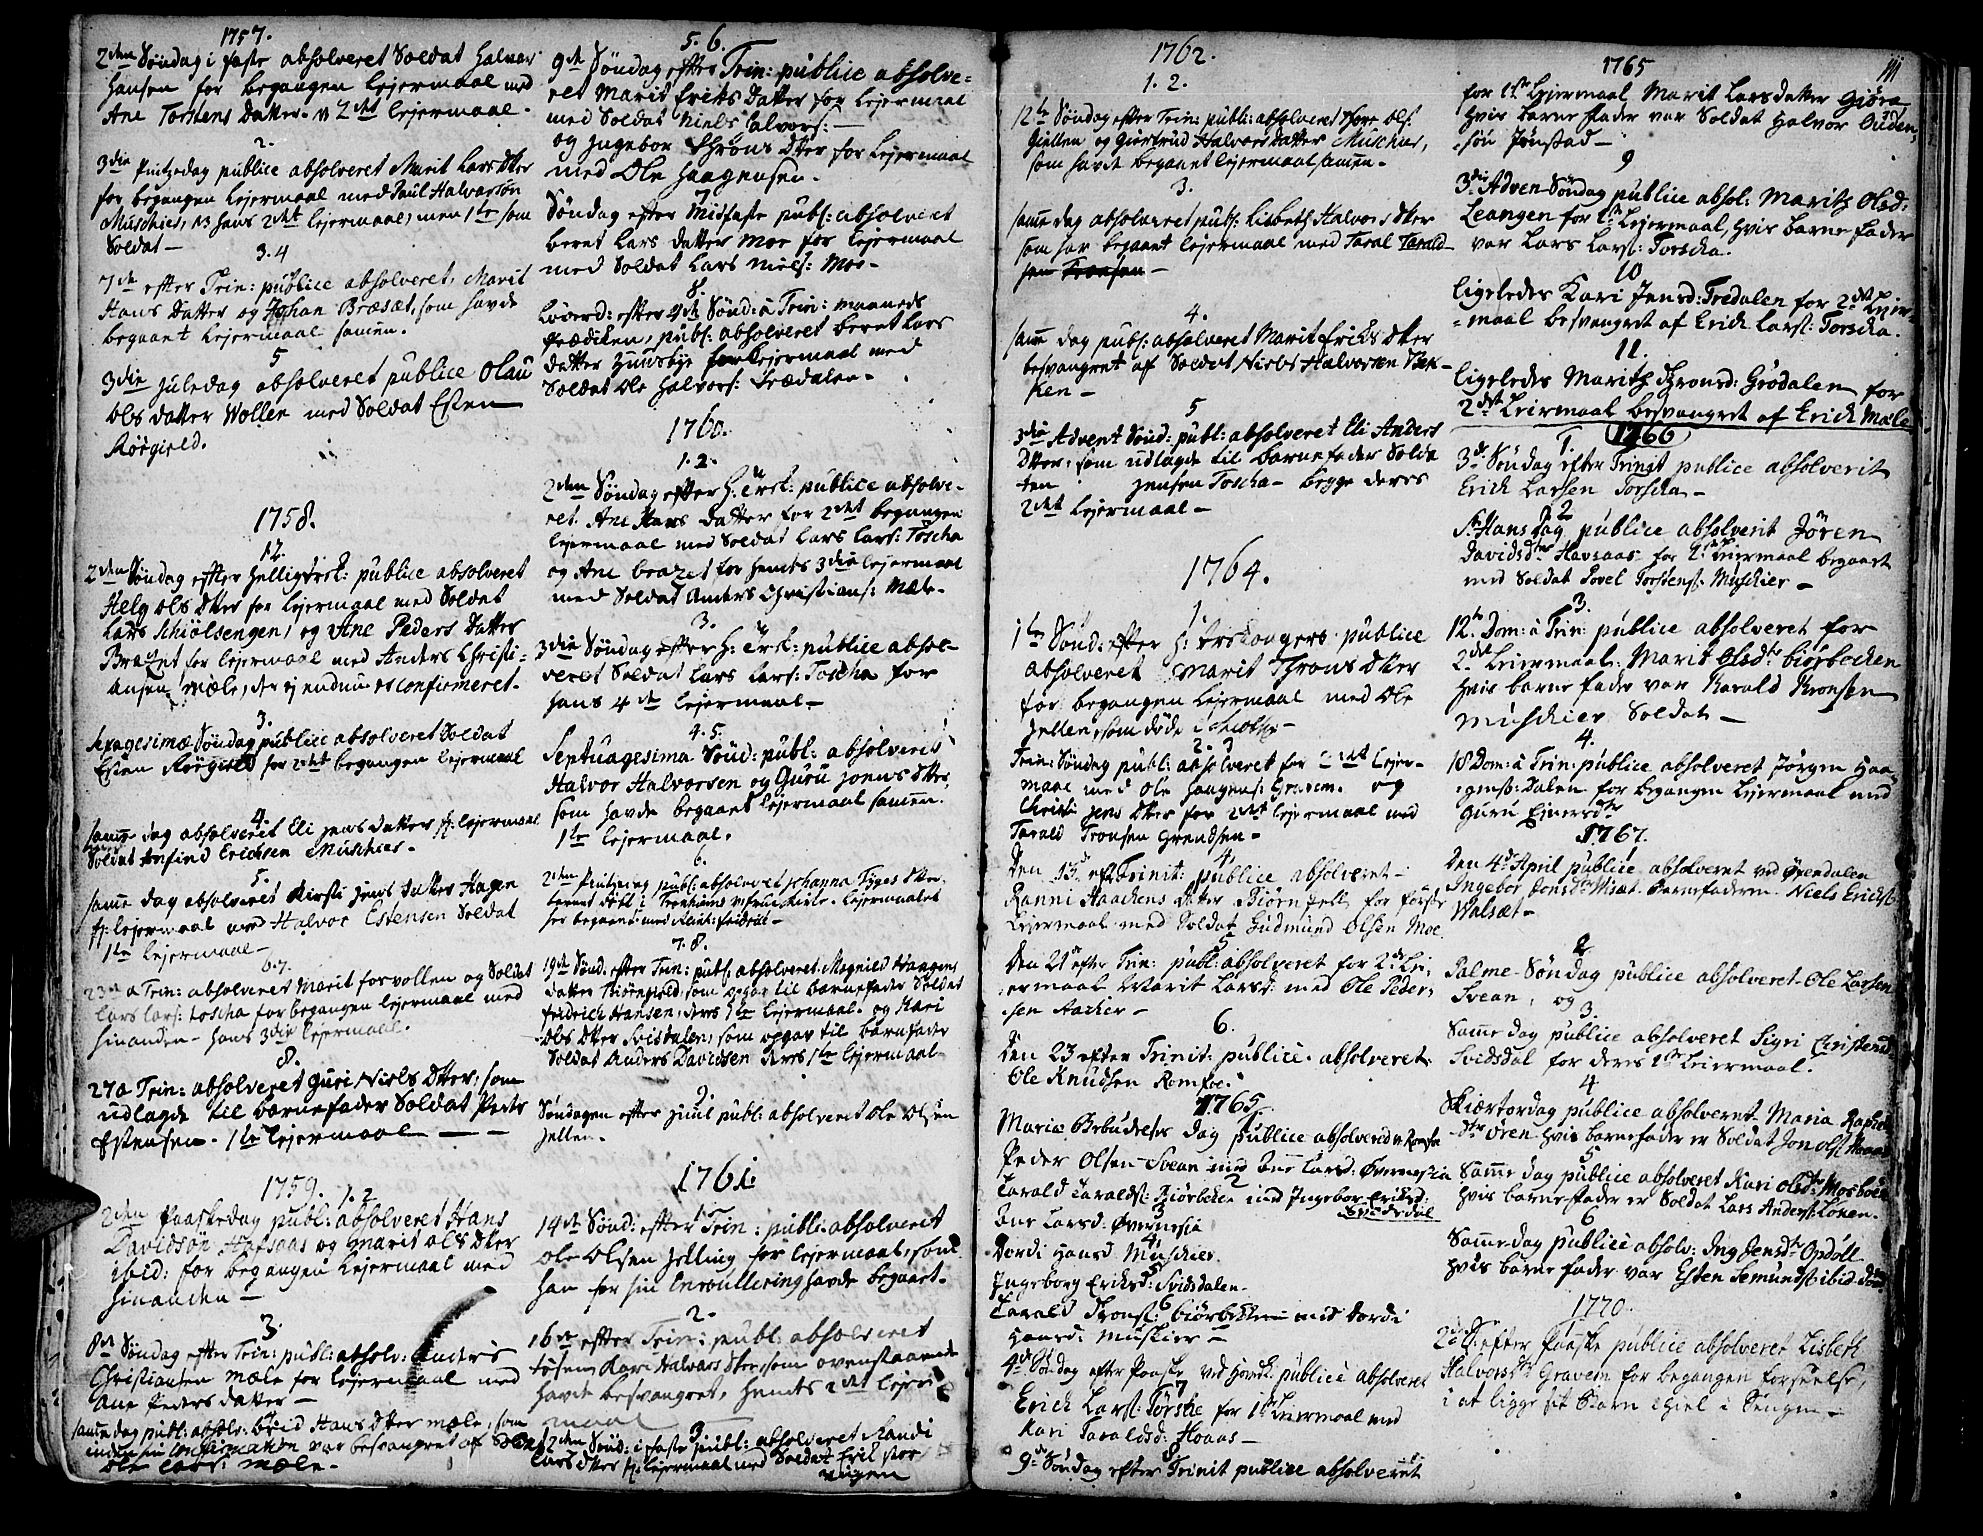 1757.
2den Søndag i faste absolveret Soldat Halvor
Hansen for begangen Lejermaal med
Ane Torstens Datter. 2det lejermaal.
2.
3die Pintzedag publice absolveret Marit Lars Dtter
for begangen Lejermaal med Paul Halvorsøn
Muschies, hans 2det lejermaal, men 1te som
Soldat —
3.4
7de efter Trin: publice absolveret, Marit
Hans Datter og Johan Bræsæt, som havde
begaaet Lejermaal samen.
5
3die Juledag absolveret publice Olau
Ols datter Wollen med Soldat Esten
Rørgield.
1758.
12.
2den Søndag efter Helligtrek: publice absolveret
Helg Ols Dtter for Lejermaal med Soldat
Lars Schiølsengen, og Ane Peders Datter
Brazet for lejermaal med Anders Christi-
ansen Mæle, der ej endnu er confirmeret.
3.
Sexagesimæ Søndag publice absolveret Soldat
Esten Rørgield for 2det begangen lejermaal
4.
samme dag absolveret Eli Jens datter f: lejermaal
Soldat Anfind Erichsen Muschies.
5.
samme dag absolveret Kirsti Jens datter Hagen
f: lejermaal med Halvor Estensen Soldat
1te lejermaal —
6.7.
23de a Trin: absolveret Marit forvollen og Soldat
Lars Lars: Toscha for begangen lejermaal med
hinanden — hans 3die lejermaal.
8.
27 a Trin: absolveret Guri Niels Dtter, som
udlagde til barnefader Soldat Peder
Estensen. 1te lejermaal —
1759.
1.2
2den Paaskedag publ: absolveret Hans
Davidsøn Hafsaas og Marit Ols Dtter
ibid: for begangen Lejermaal med
hinanden —
3.
8de Søndag efter Trin: publ: absolv: Anders
Christiansen Mæle for lejermaal med
Ane Peders datter —
samme dag publ: absolv: Brid Hans Dtter Mæle, som
inden sin Confirmation var besvangret af
Ole Lars: Mæle.
5.6.
9de Søndag efter Trin: publice absolve-
ret Marit Eriks Datter for Lejermaal
med Soldat Niels Halvors: —
og Ingebor Throns Dtter for Lejermaal
med Ole Haagensen.
7
Søndag efter Midfaste publ: absolveret
Beret Lars datter Moe for Lejermaal
med Soldat Lars Niels: Moe.
8
Løverd: efter 4de Sønd: a Trin: maaneds
Prædiken, publ: absolveret Beret Lars
datter Hundsbye for Lejermaal med
Soldat Ole Halvors: Trædalen.
1760.
1.2.
2den Søndag efter H: trek: publice absolve-
ret Ane Hans datter for 2det begangen
lejermaal med Soldat Lars Lars: Toscha
og Ane brazet for hendes 3die lejermaal
med Soldat Anders Christians: Mæle.
3.
3die Søndag efter H: trek: publice absol-
veret Soldat Lars Lars: Toscha for
hans 4de Lejermaal —
4.5.
Septuagesima Sønd: publ: absolveret
Halvor Halvorsen og Guru Joens Dtter,
som havde begaaet lejermaal samen.
1te lejermaal.
6.
2den Pintzedag publ: absolveret Johanna Tyges Dtter
7.8.
19de Sønd: efter Trin: publ: absolveret Magnild Haagens
datter Biørnfield, som opgav til barnefader Soldat
Fredrich Hansen, ders 1te lejermaal. og Kari
Ols Dtter Svisdalen, som opgav til barnfader
Soldat Anders Davidsen ders 1te lejermaal
9.
Søndagen efter Juul publ: absolveret Ole Olsen
Jellen.
1761.
1
14de Sønd: efter Trin: publ: absolveret
Ole Olsen Jelling for lejermaal, som
han for sin Enroullering havde begaaet.
2.
16de efter Trin: publ: absolveret
tøsen Kari Halvors Dtter, som ovenstaaende
havde besvangret, hendes 2det lejer-
maal
3
2den Sønd: i faste publ: absolveret Randi
Lars Dtter f: lejermaal med Soldat Erik stor
vigen
1762.
1.2.
12te Søndag efter Trin: publ: absolveret Thore Ols:
Giellen og Giertrud Halvors datter Muschies,
som havde begaaet lejermaal samen.
3.
samme dag absolveret publ: Lisbeth Halvors Dtter
som har begaaet lejermaal med Tarald Tarald-
sen Tronsen —
4.
samme dag publ: absolveret Marit Eriks Dtter
besvangret af Soldat Niels Halvorsen Bæk-
ken —
5
3die Advent Sønd: publ: absolveret Eli Anders
Dtter, som udlagde til barnefader Solda
ten Jensen Toscha — begge deres
2det lejermaal —
1764.
1
1te Sønd: efter H: trekongers publice
absolveret Marit Throns Dtter
for begangen lejermaal med Ole
Jellen, som døde i
2. 3
Trin: Søndag publ: absolveret for 2det Lejer-
maal med Ole Haagens: Gravem. og
Christi Jens Dtter for 2det lejermaal med
Tarald Tronsen Grendsen —
4.
Den 13de eft Trinit: publice absolveret —
Ranni Haachens Dtter Biørnfell for første
Leiermaal med Soldat Gudmund Olsen Moe.
5
Den 21de efter Trin: publ: absolveret for 2det Lei-
ermaal Marit Larsd: med Ole Peder-
sen Aacher —
6.
Den 23 efter Trinit: publice absolveret
Ole Knudsen Romfoe.
1765.
Mariæ Bebudelses dag publice absolvered v. Romfoe
Peder Olsen Svean med Ane Larsd: Øvernesia
2
Tarald Taraldsf: Biørbeken med Ingebor Ericksd:
Svidsdal
3
Ane Larsd: Øvernesia
4.
Dordi Hansd Muschier.
5
Ingeborg Eriksd: Svidsdalen.
6
Tarald Thronsf: Biørbechen med Dordi
Hansd: Muskier —
7
4de Søndag efter Paaske ved Hovedk: publice absolveret
Erich Larsf: Torske for 1ste Leiermaal med
Kari Taraldsd: Hoaas —
8
9de Søndag efter Trinit publice absolveret
1765
111
for 1ste Lejermaal Marit Larsdatter Giøra
hvis barnefader var Soldat Halvor Ouden-
søn Jønstad —
9
3die Adven-Søndag publice absol: Marith Olsd:
Leangen for 1ste Lejermaal, hvis barnefader
var Lars Larsf: Torscha.
10
Ligeledes Kari Jensd: Tredalen for 2det Leier-
maal besvangret af Erich Larsf: Torscha.
11
Ligeledes Marith Thronsd: Grødalen for
2det Leiermaal besvangret af Erich Mæle
1766
1.
3de Søndag efter Trinit publice absolverit
Erich Larsen Torscha —
2
St Hansdag publice absolverit Jøren
Davidsdtr Havsaas for 1ste Leiermaal begaaet
med Soldat Povel Torstensf: Muschier —
3.
12te Dom: a Trin: publice absolveret for
2det Leiermaal Marit Olsdtr Biørbecken
hvis barnefader var Harald Kronsen
Muschier Soldat —
4.
18 Dom: a Trin: publice absolveret Jørgen Haa-
gensf: Dalen for begangen Lejermaal med
Guru Ejnersdtr
1767.
1
Den 4de April publice absolveret ved Øxendalen
Ingebor Jonsdtr Wisæt. Barnefaderen Niels Ericks:
Walsæt —
2
Palme-Søndag publice absolveret Ole Larsen
Svean, og
3.
Samme dag publice absolveret Sigri Christensd:
Svidsdal for deres 1ste Leiermaal.
4
Skiærtorsdag publice absolveret Maria
dtr Ören hvis barnefader er Soldat Jon Olsf:
5
Samme dag publice absolveret Kari Olsdtr Mosboen
hvis barnefader er Soldat Lars Andersf: Lönen.
6
Samme dag publice absolv: Ing Jensdtr Opdøll
hvis barnefader var Esten Semundsf: ibid.
1770.
2den S: efter Paaske publice absolveret Lisbeth
Halvorsdtr Gravem for begangen forseelse,
i at ligge sit Barn ihiel i Sengen —